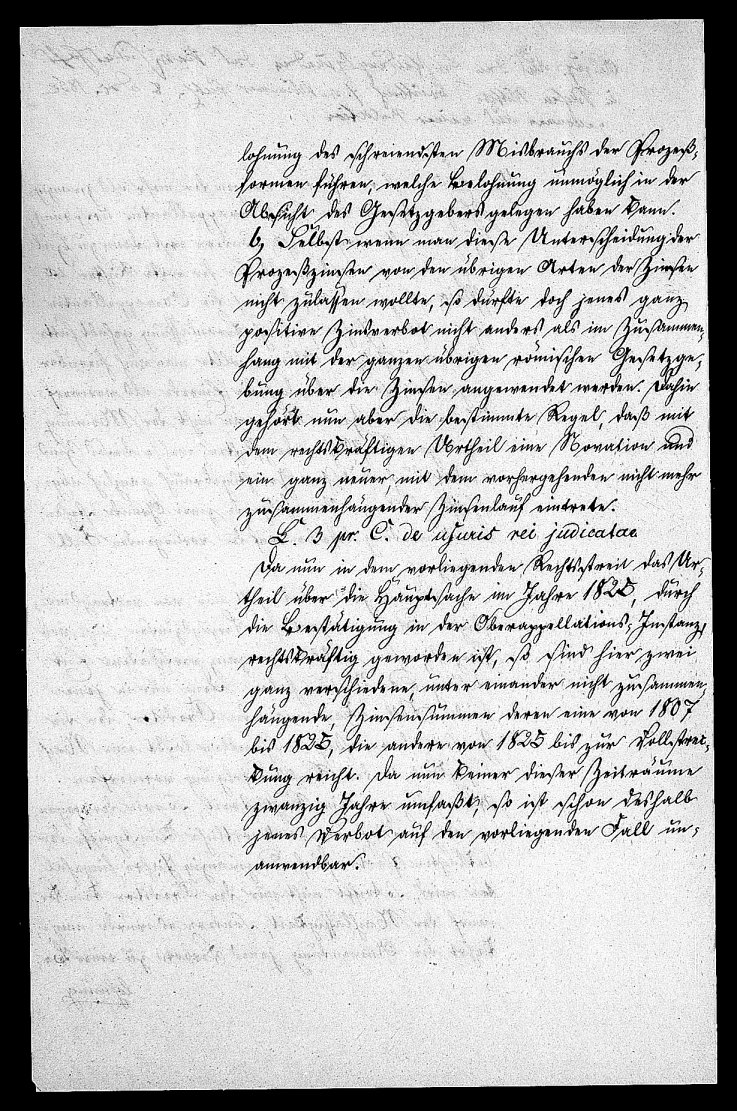 lohnung des schreiendsten Misbrauchs der Prozeß-
formen führen, welche Belohnung unmöglich in der
Absicht des Gesetzgebers gelegen haben kann.
b, Selbst wenn man diese Unterscheidung der
Prozeßzinsen von den übrigen Arten der Zinsen
nicht zulassen wollte, so dürfte doch jenes ganz
positive Zinsverbot nicht anders als im Zusammen-
hang mit der ganzen übrigen römischen Gesetzge-
bung über die Zinsen angewendet werden. Dahin
gehört nun aber die bestimmte Regel, daß mit
dem rechtskräftigen Urtheil eine Novation und
ein ganz neuer, mit dem vorhergehenden nicht mehr
zusammenhängender Zinsenlauf eintrete.
L. 3 pr. C. de usuris rei judicatae
Da nun in dem vorliegenden Rechtsstreit das Ur-
theil über die Hauptsache im Jahre 1825, durch
die Bestätigung in der Oberappellations-Instanz,
rechtskräftig geworden ist, so sind hier zwei
ganz verschiedene, unter einander nicht zusammen-
hängende, Zinsensummen deren eine von 1807
bis 1825, die andere von 1825 bis zur Vollstrec-
kung reicht. Da nun keiner dieser Zeiträume
zwanzig Jahre umfaßt, so ist schon deshalb
jenes Verbot auf den vorliegenden Fall un-
anwendbar.